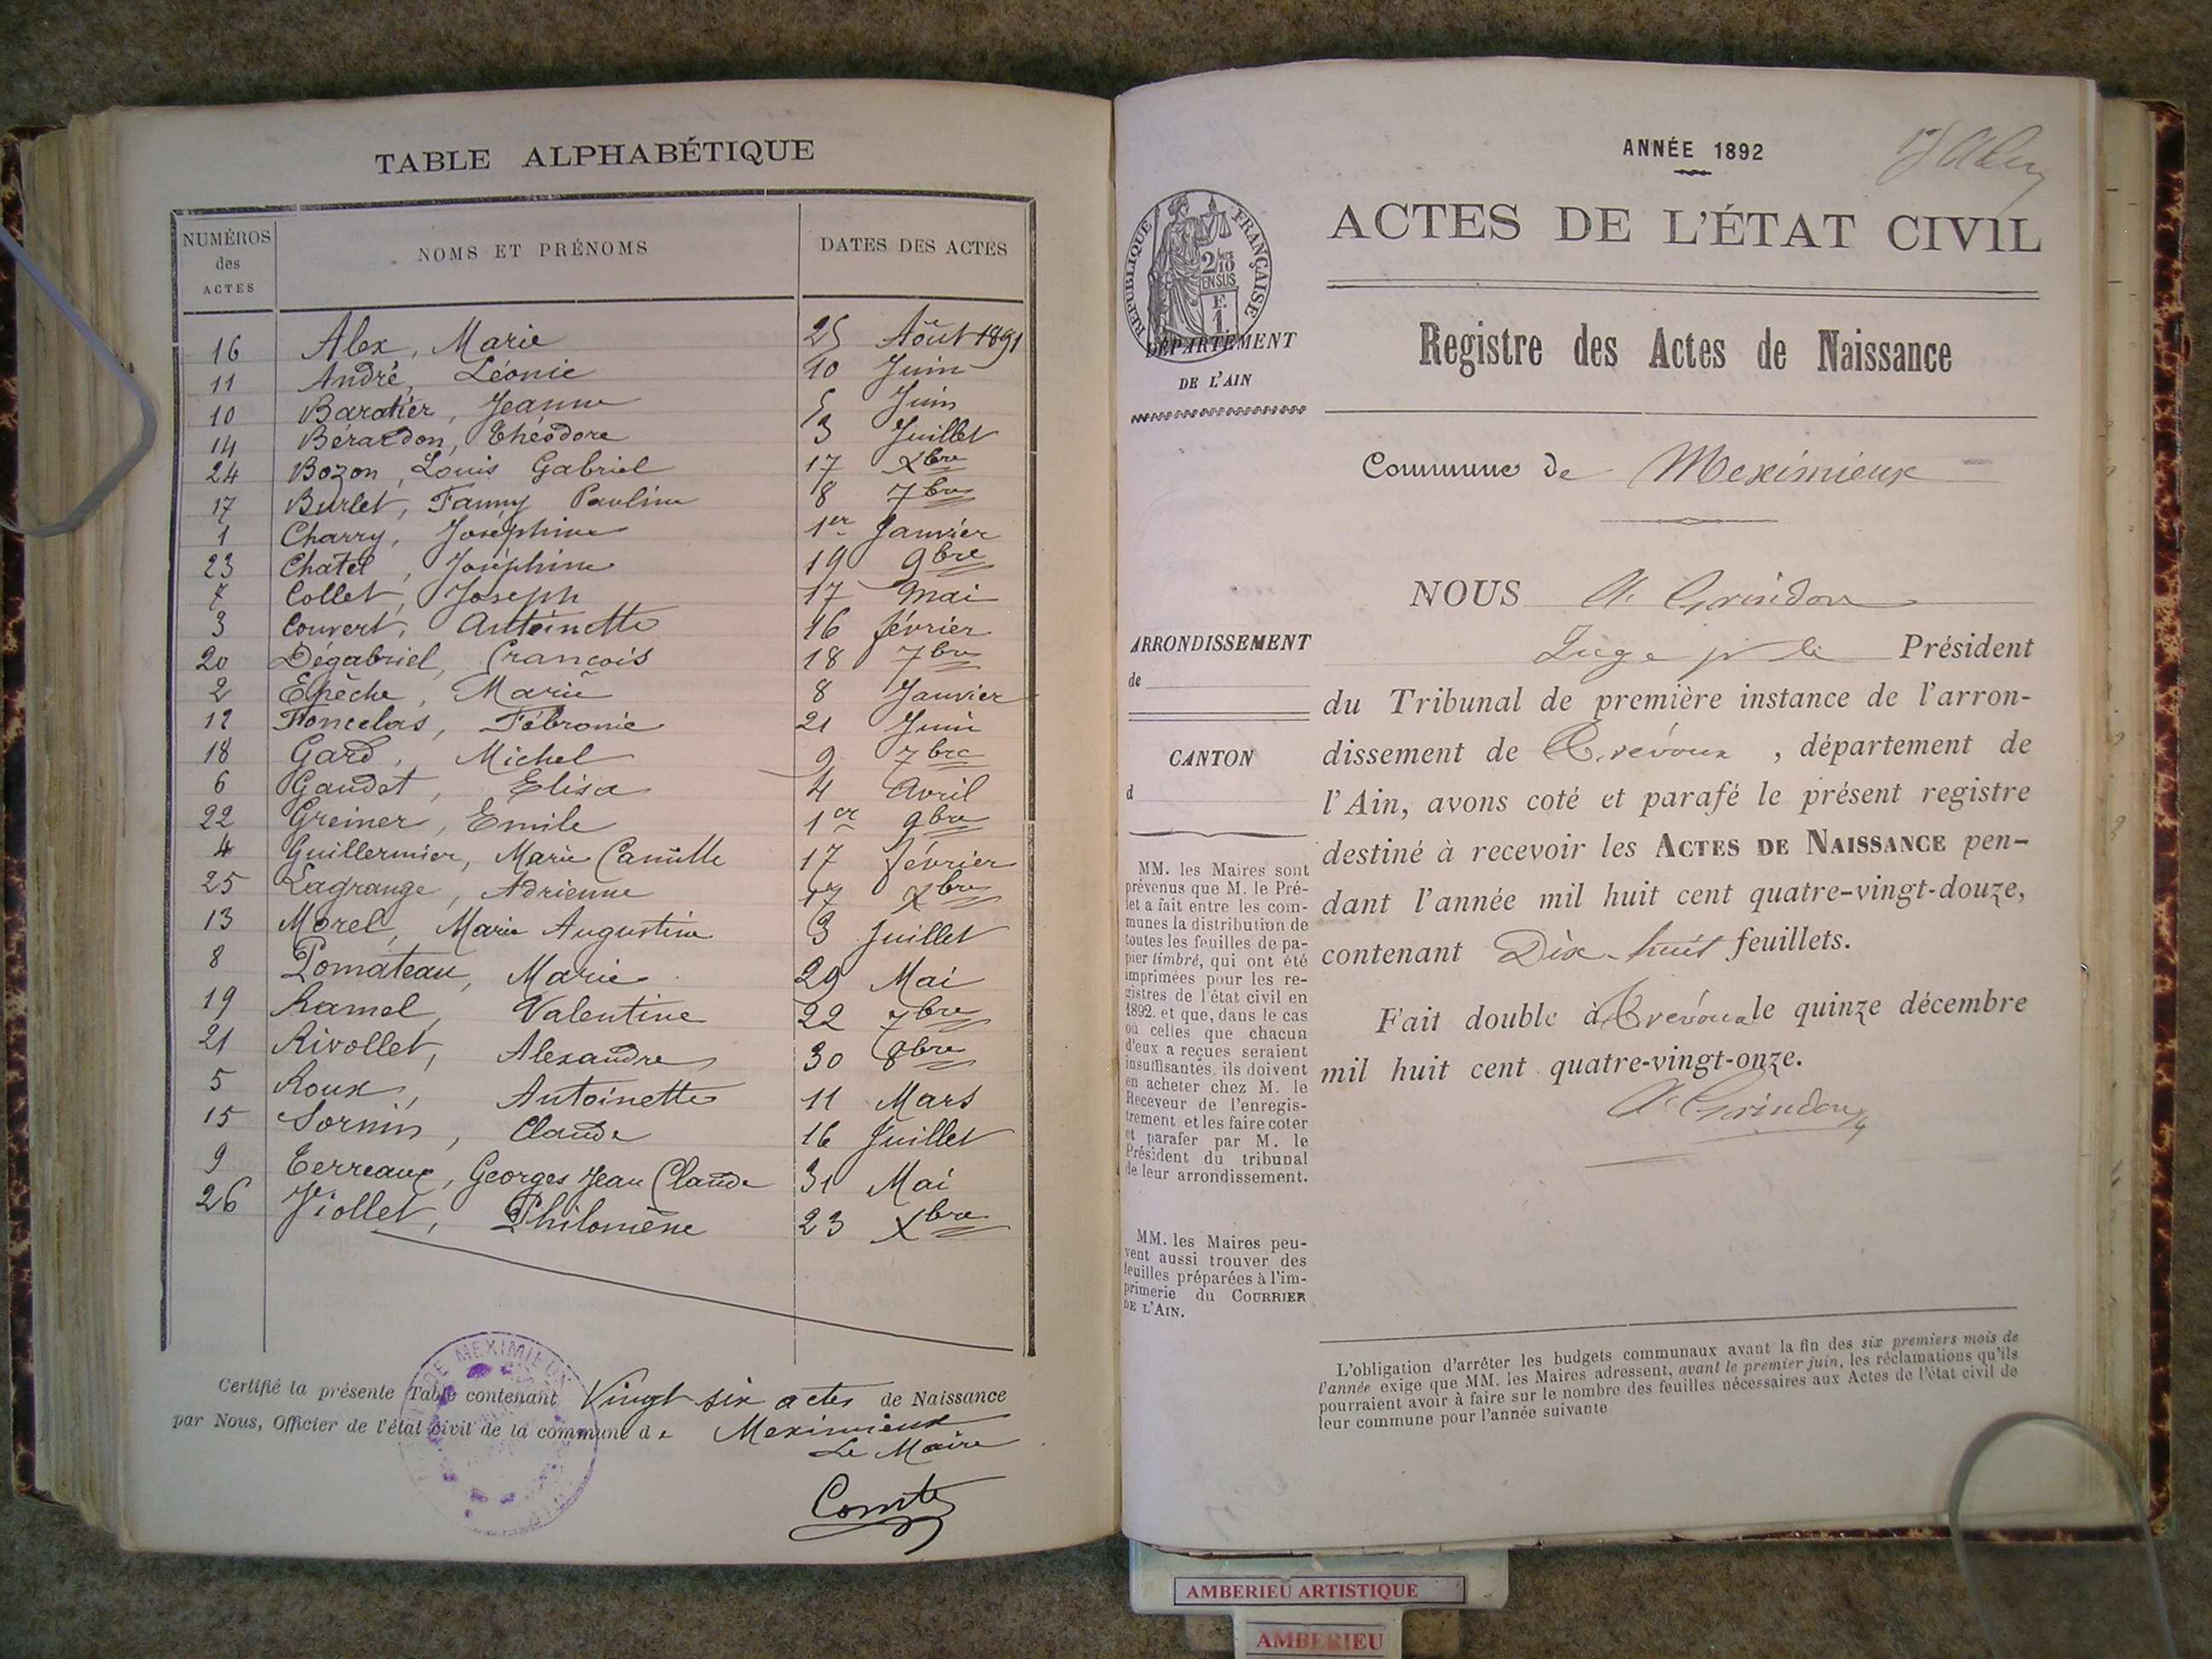 TABLE ALPHABÉTIQUE
NUMÉROS des ACTES NOMS ET PRÉNOMS DATES DES ACTES
16 Alex, Marie 25 Août 1891
11 André, Léonie 10 Juin
10 Baratier, Jeanne 5 Juin
14 Bérardon, Théodore 3 Juillet
24 Bozon, Louis Gabriel 17 Xbre
17 Burlet, Fanny Pauline 8 7bre
1 Charry, Joséphine 1er Janvier
23 Chatel, Joséphine 19 9bre
7 Collet, Joseph 17 Mai
3 Couvert, Antoinette 16 février
20 Dégabriel, François 18 7bre
2 Epêche, Marie 8 Janvier
12 Foncelas, Fébronie 21 Juin
18 Gard, Michel 9 7bre
6 Gaudet, Elisa 4 Avril
22 Greiner, Emile 1er 9bre
4 Guillermier, Marie Camille 17 février
25 Lagrange, Adrienne 17 Xbre
13 Morel, Marie Augustine 3 Juillet
8 Pomateau, Marie 29 Mai
19 Ramel, Valentine 22 7bre
21 Rivollet, Alexandre 30 8bre
5 Roux, Antoinette 11 Mars
15 Sornin, Claude 16 Juillet
9 Terreaux, Georges Jean Claude 31 Mai
26 Viollet, Philomène 23 Xbre
Certifié la présente Table contenant Vingt six actes de Naissance
par Nous, Officier de l'état civil de la commune de Meximieux
Le Maire
Comte
DE MEXIMIEUX
ANNÉE 1892
ACTES DE L'ÉTAT CIVIL
RÉPUBLIQUE FRANÇAISE
2/10
EN SUS
F.
1
DÉPARTEMENT
DE L'AIN
Registre des Actes de Naissance
Commune de Meximieux
ARRONDISSEMENT
de
CANTON
d
MM. les Maires sont
prévenus que M. le Pré-
fet a fait entre les com-
munes la distribution de
toutes les feuilles de pa-
pier timbré, qui ont été
imprimées pour les re-
gistres de l'état civil en
1892. et que, dans le cas
où celles que chacun
d'eux a reçues seraient
insuffisantes. ils doivent
en acheter chez M. le
Receveur de l'enregis-
trement et les faire coter
et parafer par M. le
Président du tribunal
de leur arrondissement.
MM. les Maires peu-
vent aussi trouver des
feuilles préparées à l'im-
primerie du COURRIER
DE L'AIN.
NOUS A. Grindon
Juge pr le Président
du Tribunal de première instance de l'arron-
dissement de Trévoux, département de
l'Ain, avons coté et parafé le présent registre
destiné à recevoir les ACTES DE NAISSANCE pen-
dant l'année mil huit cent quatre-vingt-douze,
contenant Dix-huit feuillets.
Fait double à Trévoux le quinze décembre
mil huit cent quatre-vingt-onze.
A. Grindon
L'obligation d'arrêter les budgets communaux avant la fin des six premiers mois de
l'année exige que MM. les Maires adressent, avant le premier juin, les réclamations qu'ils
pourraient avoir à faire sur le nombre des feuilles nécessaires aux Actes de l'état civil de
leur commune pour l'année suivante
AMBERIEU ARTISTIQUE
AMBERIEU